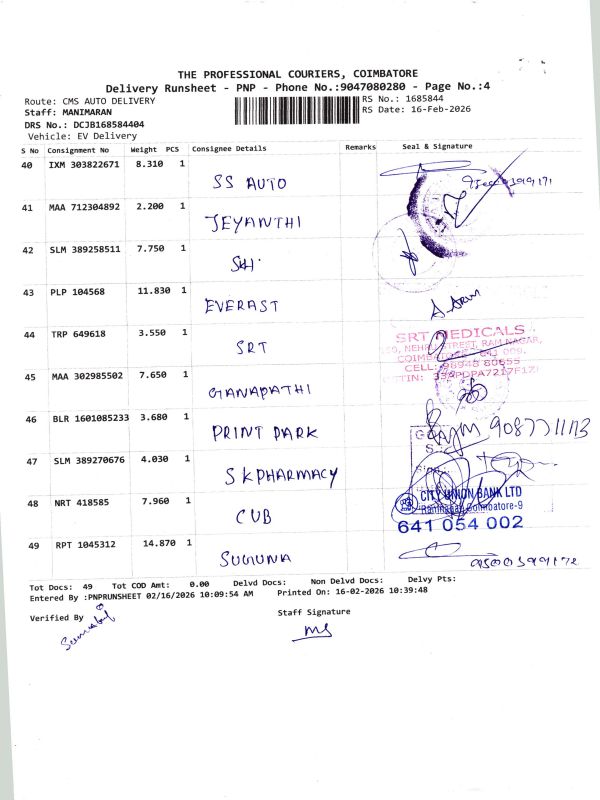 THE PROFESSIONAL COURIERS, COIMBATORE
Delivery Runsheet - PNP - Phone No.:9047080280 - Page No.:4
Route: CMS AUTO DELIVERY RS No.: 1685844
Staff: MANIMARAN RS Date: 16-Feb-2026
DRS No.: DCJB168584404
Vehicle: EV Delivery
S No Consignment No Weight PCS Consignee Details Remarks Seal & Signature
40 IXM 303822671 8.310 1 SS AUTO
41 MAA 712304892 2.200 1 JEYANTHI
42 SLM 389258511 7.750 1
43 PLP 104568 11.830 1 EVERAST
44 TRP 649618 3.550 1 SRT
SRT MEDICALS
NEHRU STREET, RAM NAGAR,
COIMBATORE - 641 009.
CELL: 98948 80655
45 MAA 302985502 7.650 1 GANAPATHI
46 BLR 1601085233 3.680 1 PRINT PARK 9087711113
47 SLM 389270676 4.030 1 SK PHARMACY
48 NRT 418585 7.960 1 CUB
CITY UNION BANK LTD
Ramnagar Coimbatore-9
641 054 002
49 RPT 1045312 14.870 1 SUGUNA
Tot Docs: 49 Tot COD Amt: 0.00 Delvd Docs: Non Delvd Docs: Delvy Pts:
Entered By :PNPRUNSHEET 02/16/2026 10:09:54 AM Printed On: 16-02-2026 10:39:48
Verified By Staff Signature